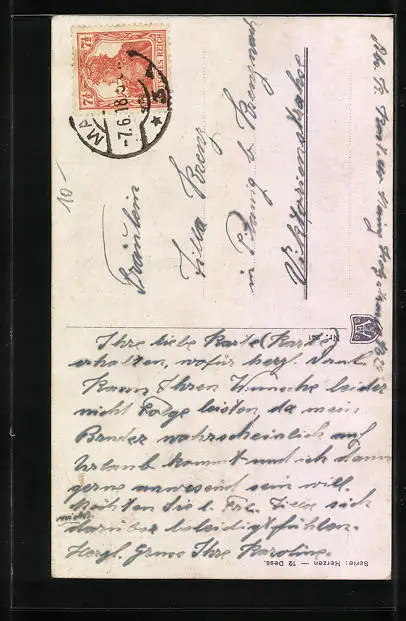 7½ 7½
DEUTSCHES REICH
-7.6.18.5-
10-
Fräulein
Zilla Krenz
in Planig b. Kreuznach
Viktoriastrasse
Nr. 241
Ihre liebe Karte (Karte)
erhalten, wofür herzl. Dank.
Kann Ihrem Wunsche leider
nicht Folge leisten, da mein
Bruder wahrscheinlich auf
Urlaub kommt und ich dann
gerne anwesend sein will.
Möchten Sie l. Frl. Zilla sich
nicht
darüber beleidigt fühlen.
Herzl. Gruss Ihre Karoline.
Serie: Herzen — 12 Dess.